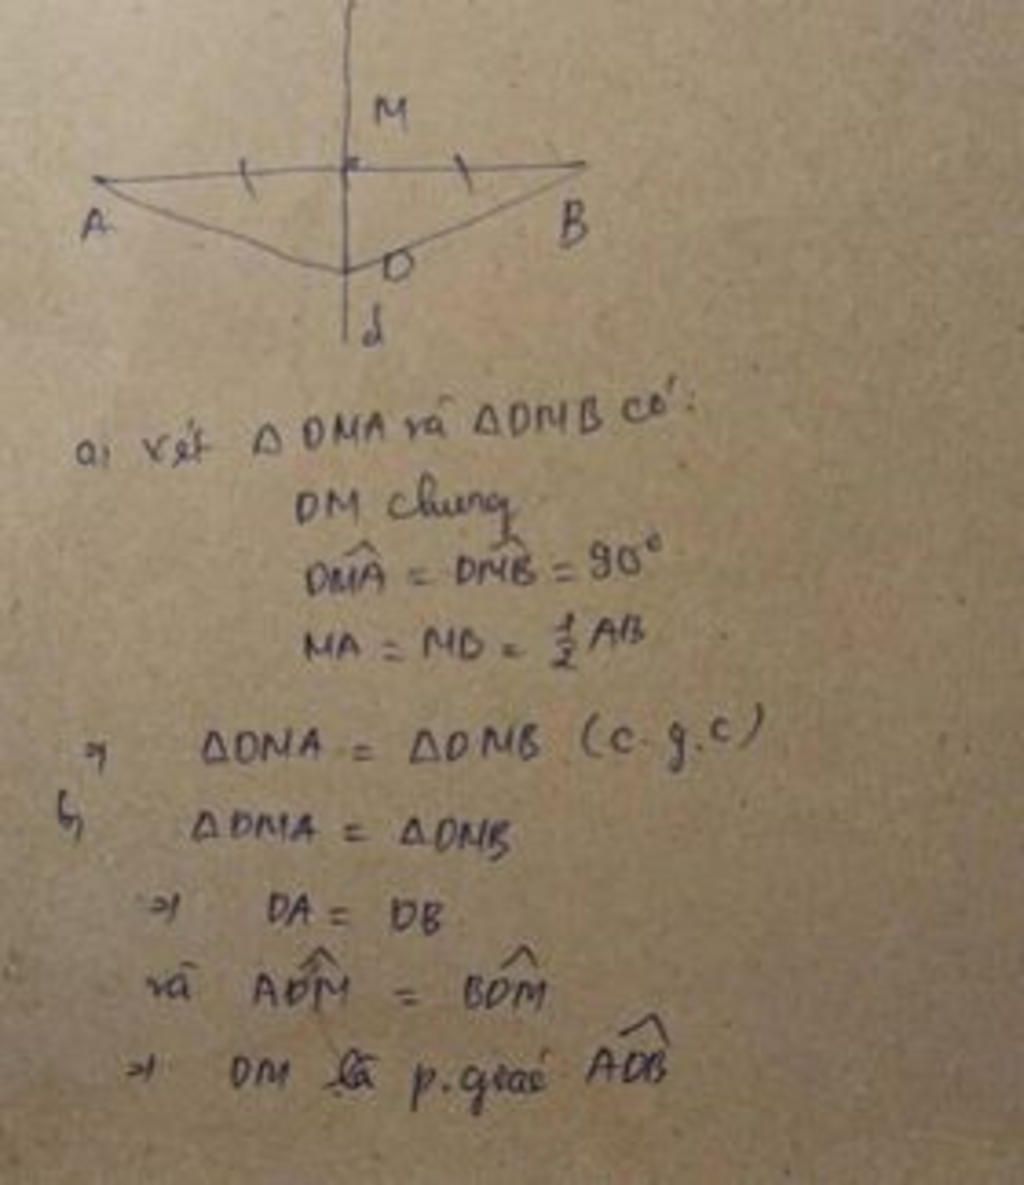 M
A
B
D
d
a, xét Δ DMA và Δ DMB có:
DM chung
DMA^ = DMB^ = 90°
MA = MB = 1/2 AB
=> ΔDMA = ΔDMB (c.g.c)
b, ΔDMA = ΔDMB
=> DA = DB
và ADM^ = BDM^
=> DM là p.giác ADB^